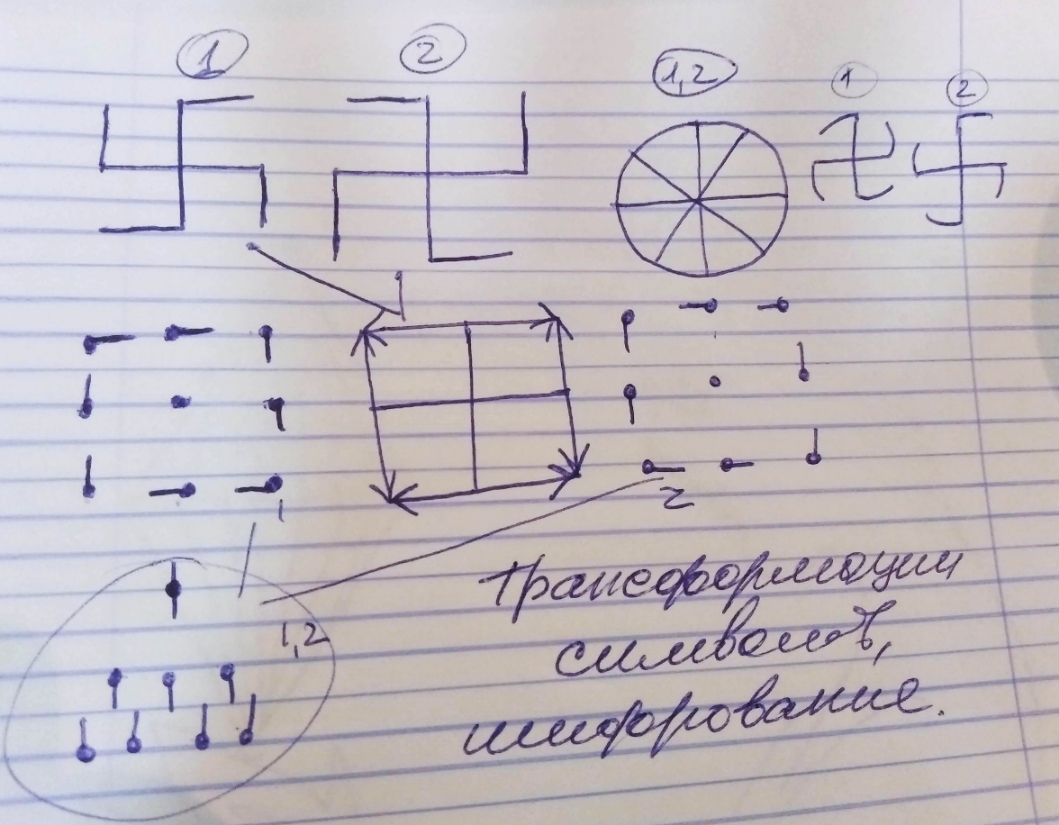 1
2
1,2
1
2
1
1
2
1,2
Трансформации
символов,
шифрование.